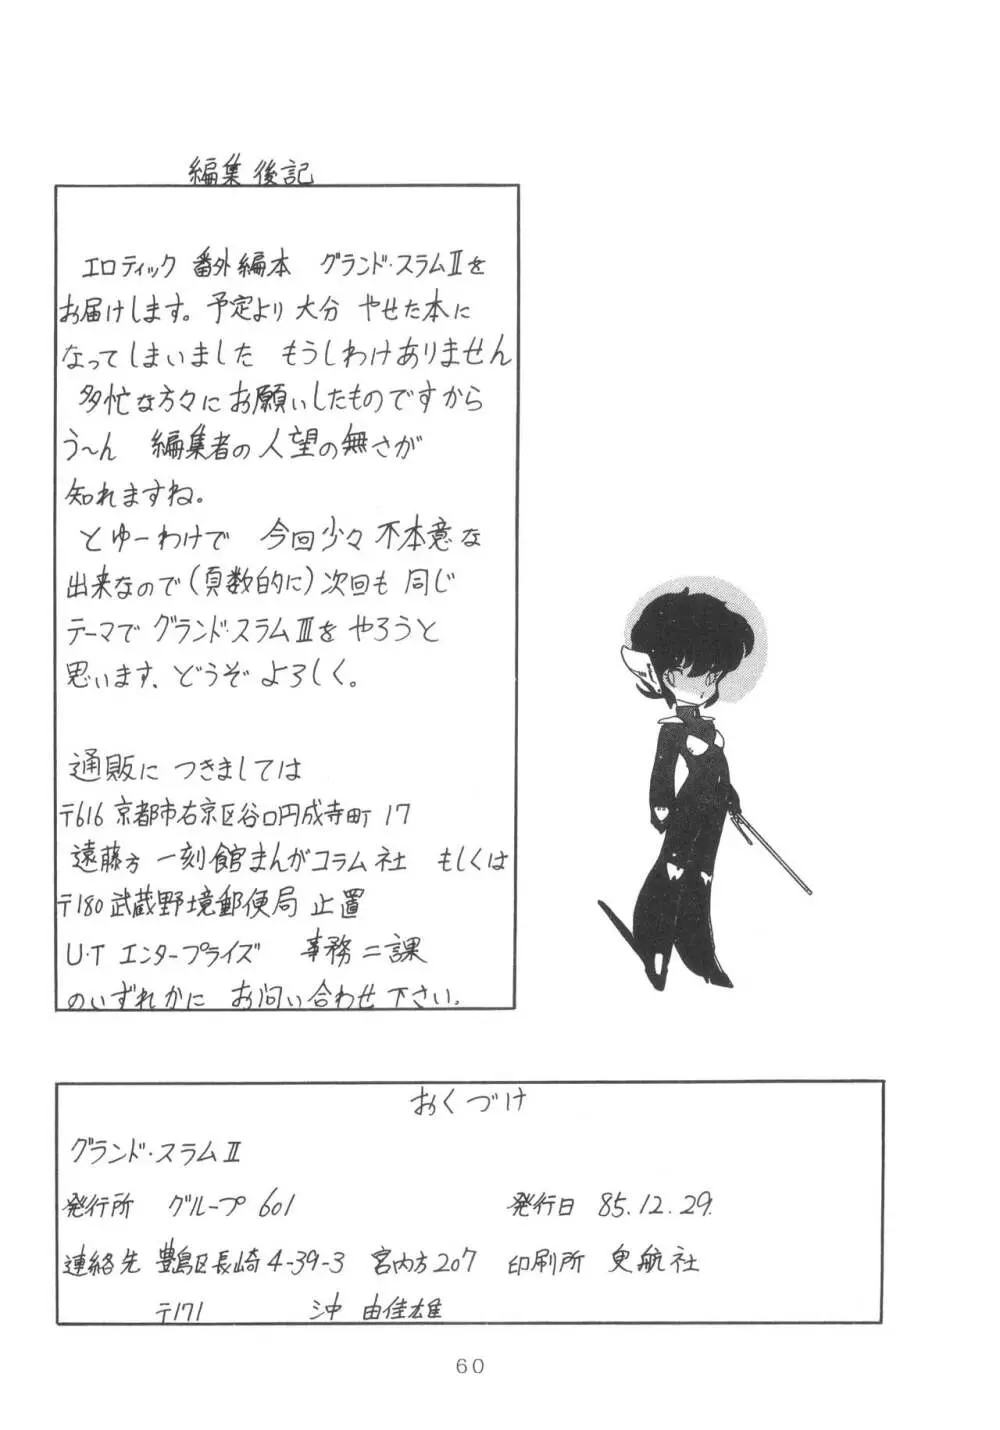 編集後記
エロティック 番外編本 グランド・スラムⅡを
お届けします。予定より 大分 やせた本に
なってしまいました もうしわけありません
多忙な方々にお願いしたものですから
う〜ん 編集者の人望の無さが
知れますね。
とゆーわけで 今回少々 不本意な
出来なので(頁数的に)次回も 同じ
テーマで グランド・スラムⅢを やろうと
思います、どうぞ よろしく。
通販に つきましては
〒616 京都市右京区谷口円成寺町 17
遠藤方 一刻館まんがコラム社 もしくは
〒180 武蔵野境郵便局 止置
U・T エンタープライズ 事務二課
のいずれかに お問い合わせ下さい。
おくづけ
グランド・スラムⅡ
発行所 グループ601 発行日 85.12.29.
連絡先 豊島区長崎4-39-3 宮内方207 印刷所 曳航社
〒171 沖 由佳雄
60